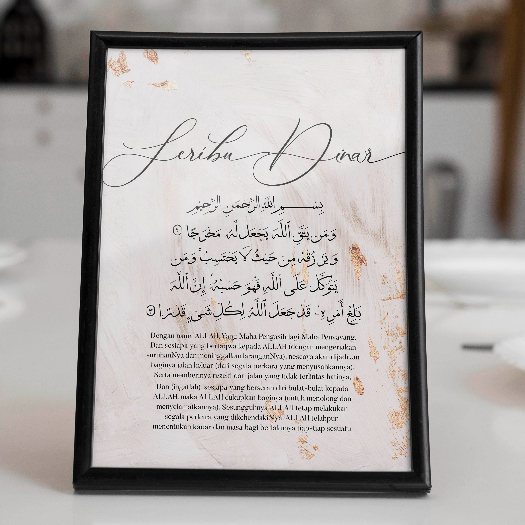 Seribu Dinar
بِسْمِ اللَّهِ الرَّحْمَنِ الرَّحِيمِ
وَمَن يَتَّقِ ٱللَّهَ يَجْعَل لَّهُۥ مَخْرَجًا ٢
وَيَرْزُقْهُ مِنْ حَيْثُ لَا يَحْتَسِبُ وَمَن
يَتَوَكَّلْ عَلَى ٱللَّهِ فَهُوَ حَسْبُهُۥٓ إِنَّ ٱللَّهَ
بَٰلِغُ أَمْرِهِۦ قَدْ جَعَلَ ٱللَّهُ لِكُلِّ شَىْءٍ قَدْرًا ٣
Dengan nama ALLAH, Yang Maha Pengasih lagi Maha Penyayang.
Dan sesiapa yang bertaqwa kepada ALLAH (dengan mengerjakan
suruhanNya dan meninggalkan laranganNya), nescaya akan dijadikan
baginya jalan keluar (dari segala perkara yang menyusahkannya).
Serta memberinya rezeki dari jalan yang tidak terlintas hatinya,
Dan (ingatlah) sesiapa yang berserah diri bulat-bulat kepada
ALLAH, maka ALLAH cukupkan baginya (untuk menolong dan
menyelamatkannya). Sesungguhnya ALLAH tetap melakukan
segala perkara yang dikehendakiNya. ALLAH telahpun
menentukan kadar dan masa bagi berlakunya tiap-tiap sesuatu